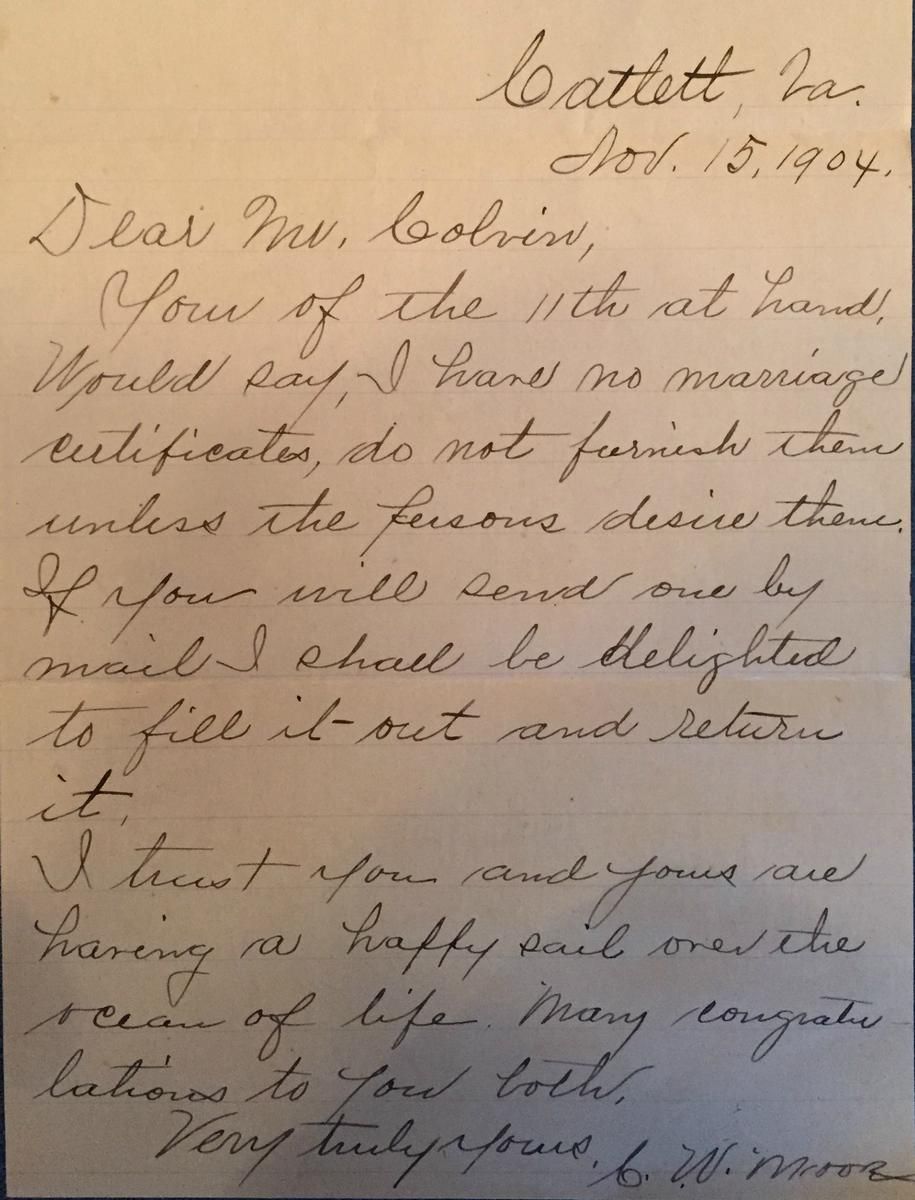 Catlett, Va.
Nov. 15, 1904.
Dear Mr. Colvin,
Your of the 11th at hand.
Would say, I have no marriage
certificates, do not furnish them
unless the persons desire them.
If you will send one by
mail I shall be delighted
to fill it out and return
it.
I trust you and yours are
having a happy sail over the
ocean of life. Many congratu
lations to you both.
Very truly yours,
C. W. Moore